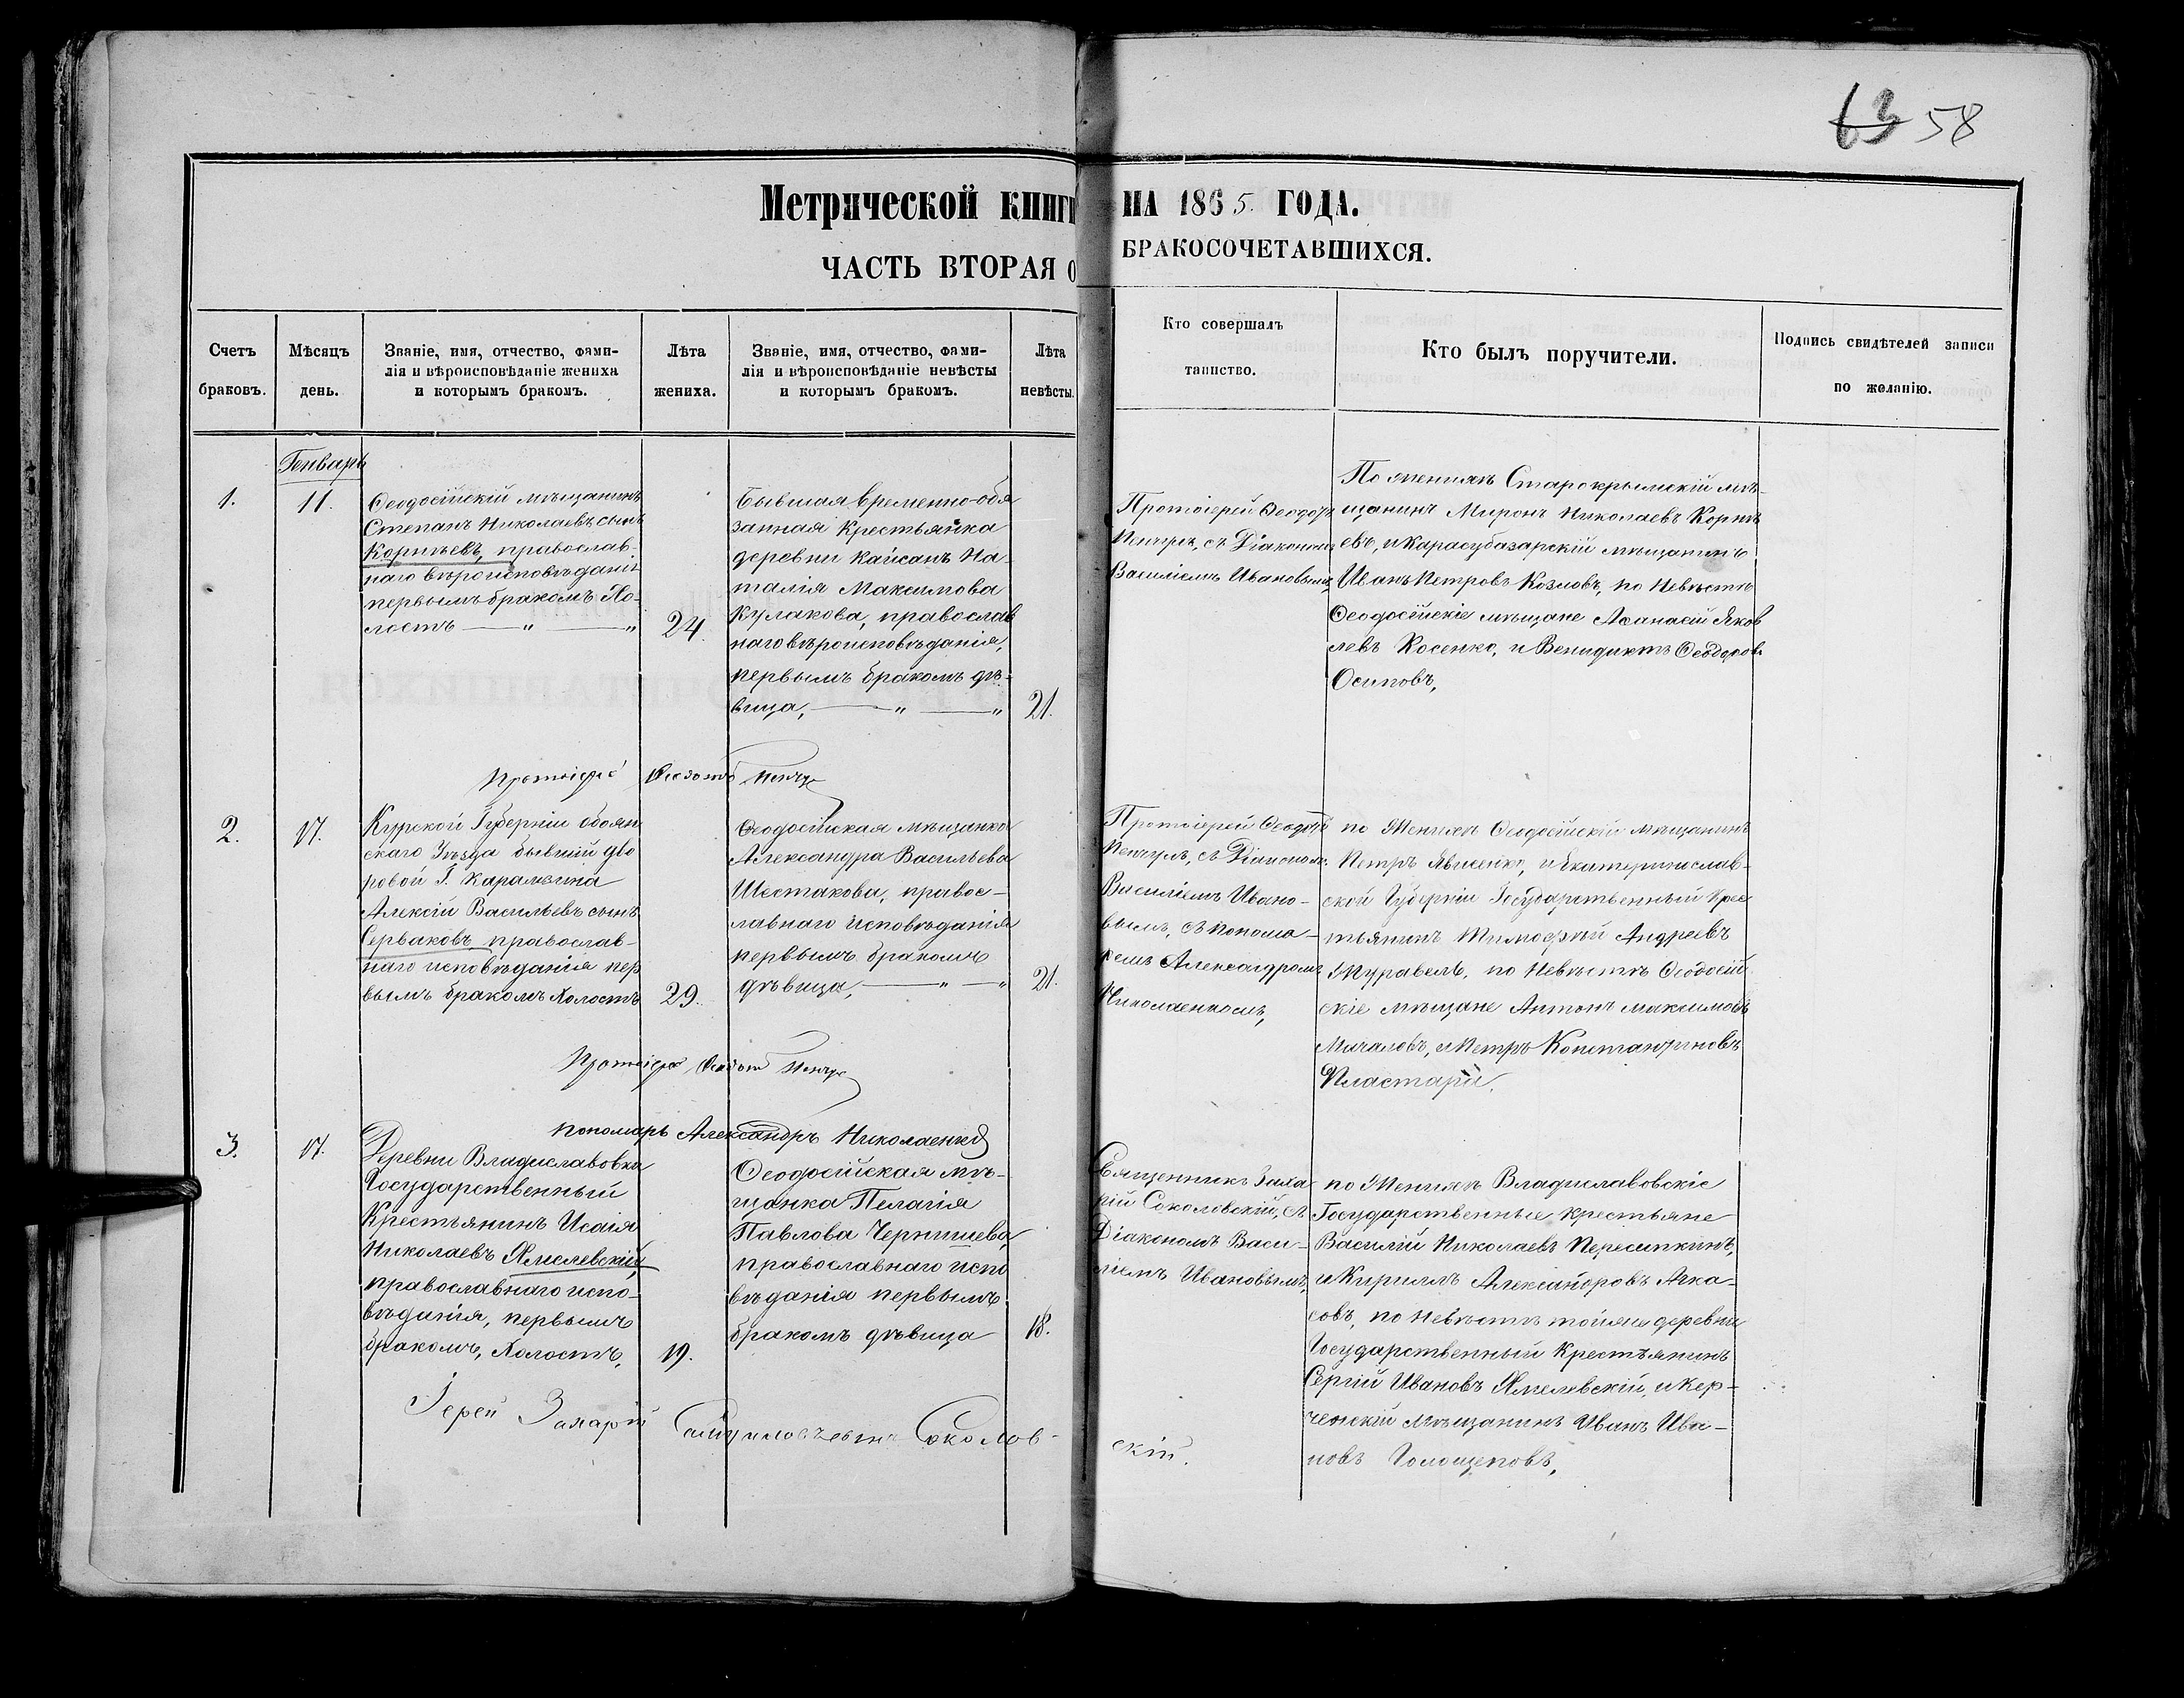 63 58
Метрической книги НА 1865. ГОДА.
ЧАСТЬ ВТОРАЯ О БРАКОСОЧЕТАВШИХСЯ.
Счетъ
браковъ.
Мѣсяцъ
день.
Званіе, имя, отчество, фами-
лія и вѣроисповѣданіе жениха
и которымъ бракомъ.
Лѣта
жениха.
Званіе, имя, отчество, фами-
лія и вѣроисповѣданіе невѣсты
и которымъ бракомъ.
Лѣта
невѣсты.
Кто совершалъ
таинство.
Кто былъ поручители.
Подпись свидѣтелей записи
по желанію.
Генварь
1.
11.
Ѳеодосійскій мѣщанинъ
Степанъ Николаевъ сынъ
Корнѣевъ, православ-
наго вѣроисповѣданія
первымъ бракомъ Хо-
лостъ — „ — „
24.
Бывшая временно-обя
занная Крестьянка
деревни Кайсанъ На-
талія Максимова
Кулакова, православ
наго вѣроисповѣданія,
первымъ бракомъ дѣ-
вица, — „ — „
21.
Протоіерей Ѳеодотъ
Пенчулъ, съ Діакономъ
Василіемъ Ивановымъ,
По женихѣ Старокрымскій мѣ-
щанинъ Миронъ Николаевъ Корнѣ
евъ, и Карасубазарскій мѣщанинъ
Иванъ Петровъ Козловъ, по Невѣстѣ
Ѳеодосійскіе мѣщане Аѳанасій Яков
левъ Косенко, и Венидиктъ Ѳеодоровъ
Осиповъ,
Протоіерей Ѳеодотъ Пенчул
2.
17.
Курской Губерніи Обоян
скаго Уѣзда бывшій дво
ровой Г. Карамзина
Алексій Васильевъ сынъ
Серваковъ православ-
наго исповѣданія пер
вымъ бракомъ Холостъ
29.
Ѳеодосійская мѣщанка
Александра Васильева
Шестакова, правос-
лавнаго исповѣданія
первымъ бракомъ
дѣвица, — „ — „
21.
Протоіерей Ѳеодотъ
Пенчулъ, съ Діакономъ
Василіемъ Ивано-
вымъ, съ понома-
ремъ Александромъ
Николаенкомъ,
по Женихѣ Ѳеодосійскій мѣщанинъ
Петръ Явисенко, и Екатеринослав-
ской Губерніи Государственный Крес
тьянинъ Тимоѳей Андреевъ
Журавель, по Невѣстѣ Ѳеодосій
скіе мѣщане Антонъ Максимовъ
Мичаловъ, и Петръ Константиновъ
Пластарій.
Протоіерей Ѳеодотъ Пенчул
пономарь Александръ Николаенко
3.
17.
Деревни Владиславовки
Государственный
Крестьянинъ Исаія
Николаевъ Ямелевскій,
православнаго испо-
вѣданія, первымъ
бракомъ, Холостъ,
19.
Ѳеодосійская мѣ-
щанка Пелагія
Павлова Чернишева,
православнаго испо
вѣданія первымъ
бракомъ дѣвица
18.
Священникъ Заха
рій Соколовскій, съ
Діакономъ Васи-
ліемъ Ивановымъ,
по Женихѣ Владиславовскіе
Государственные крестьяне
Василій Николаевъ Пересипкинъ,
и Кириллъ Александровъ Атка-
совъ, по Невѣстѣ тойже деревни
Государственный Крестьянинъ
Сергій Ивановъ Ямелевскій, и Кер-
ченскій мѣщанинъ Иванъ Ива-
новъ Голощеповъ,
Іерей Захарій Самуиловъ сынъ Соколов-
скій.